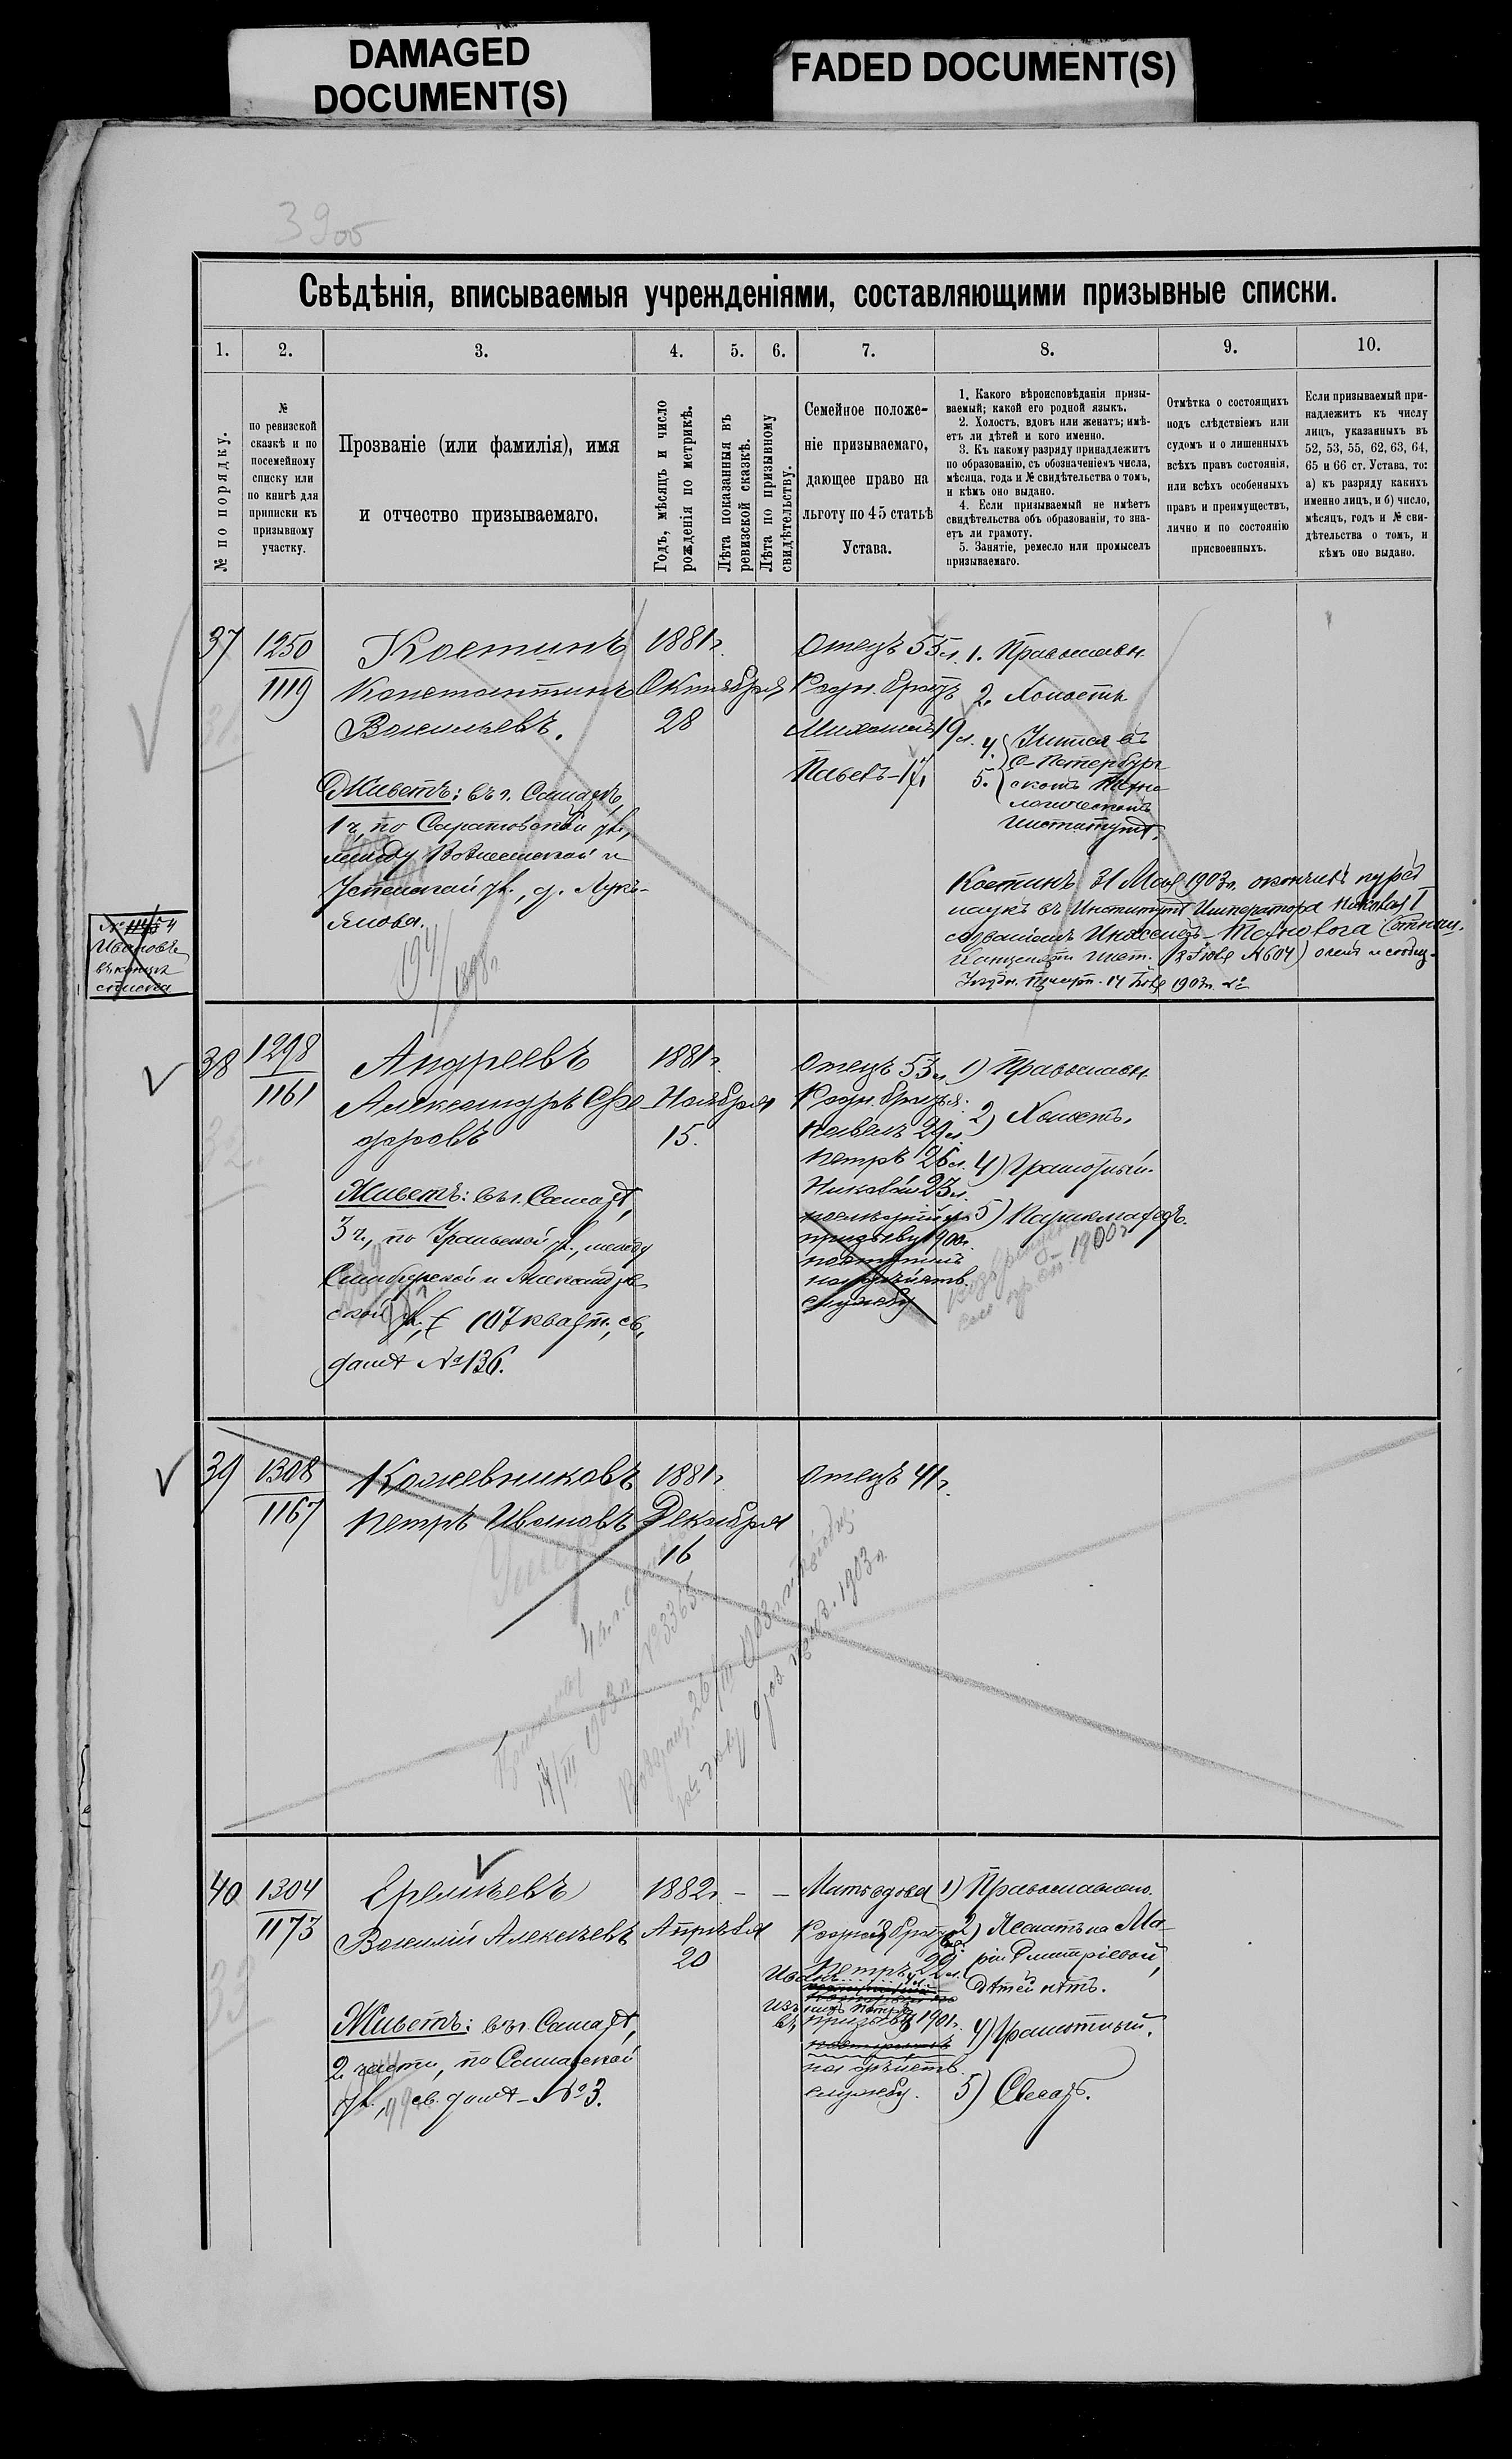 DAMAGED
DOCUMENT(S)
FADED DOCUMENT(S)
Свѣдѣнія, вписываемыя учрежденіями, составляющими призывные списки.
1. 2. 3. 4. 5. 6. 7. 8. 9. 10.
№ по порядку.
№
по ревизской
сказкѣ и по
посемейному
списку или
по книгѣ для
приписки къ
призывному
участку.
Прозваніе (или фамилія), имя
и отчество призываемаго.
Годъ, мѣсяцъ и число
рожденія по метрикѣ.
Лѣта показанныя въ
ревизской сказкѣ.
Лѣта по призывному
свидѣтельству.
Семейное положе-
ніе призываемаго,
дающее право на
льготу по 45 статьѣ
Устава.
1. Какого вѣроисповѣданія призы-
ваемый; какой его родной языкъ.
2. Холостъ, вдовъ или женатъ; имѣ-
етъ ли дѣтей и кого именно.
3. Къ какому разряду принадлежитъ
по образованію, съ обозначеніемъ числа,
мѣсяца, года и № свидѣтельства о томъ,
и кѣмъ оно выдано.
4. Если призываемый не имѣетъ
свидѣтельства объ образованіи, то зна-
етъ ли грамоту.
5. Занятіе, ремесло или промыселъ
призываемаго.
Отмѣтка о состоящихъ
подъ слѣдствіемъ или
судомъ и о лишенныхъ
всѣхъ правъ состоянія,
или всѣхъ особенныхъ
правъ и преимуществъ,
лично и по состоянію
присвоенныхъ.
Если призываемый при-
надлежитъ къ числу
лицъ, указанныхъ въ
52, 53, 55, 62, 63, 64,
65 и 66 ст. Устава, то:
а) къ разряду какихъ
именно лицъ, и б) число,
мѣсяцъ, годъ и № сви-
дѣтельства о томъ, и
кѣмъ оно выдано.
37
1250
1119
Костинъ
Константинъ
Васильевъ.
Живетъ: въ г. Самарѣ,
1 ч, по Саратовской ул.,
между Вознесенской и
Успенской ул., д. Лукь-
янова.
194
1898 г.
1881 г.
Октября
28
Отецъ 55 л.
Родн. братъ
Михаилъ 19 л.
Павелъ-17
1. Православн.
2. Холостъ
4. Учится въ
С-Петербург
5. скомъ Техно
логическомъ
институтѣ.
Костинъ 31 Мая 1903 г. окончилъ курсъ
наукъ въ Институтѣ Императора Николая I
со званіемъ Инженеръ-Технолога
14 1903 г.
Ивановъ
въ концѣ
списка
38
1298
1161
Андреевъ
Александръ Фе-
доровъ
Живетъ: въ г. Самарѣ,
3 ч., по Уральской ул., между
Симбирской и Александров
ской ул., 107 кварт., св.
домѣ № 136.
1881 г.
Ноября
15.
Отецъ 53 л.
Родн. братья:
Павелъ 29 л.
Петръ 26 л.
Николай 23 л.
призыву 1900 г.
поступилъ
на дѣйств.
службу
1) Православн.
2) Холостъ.
4) Грамотный.
5) Парикмахеръ.
1900 г.
39
1308
1167
Кожевниковъ
Петръ Ивановъ
1881 г.
Декабря
16
Отецъ 41 г.
17/III 1903 г. № 3365
26/III 1903 г.
1903 г.
40
1304
1173
Еремѣевъ
Василій Алексѣевъ
Живетъ: въ г. Самарѣ,
2 части, по Самарской
ул., св. домѣ-№ 3.
1882 г. - -
Апрѣля
20
Мать вдова
Родной братъ
Петръ
Иванъ
изъ нихъ Петръ
въ призывъ 1901 г.
поступилъ
на дѣйств.
службу.
1) Православнаго.
2) Женатъ на Ма-
ріи Дмитріевой,
дѣтей нѣтъ.
4) Грамотный.
5) Слесарь.